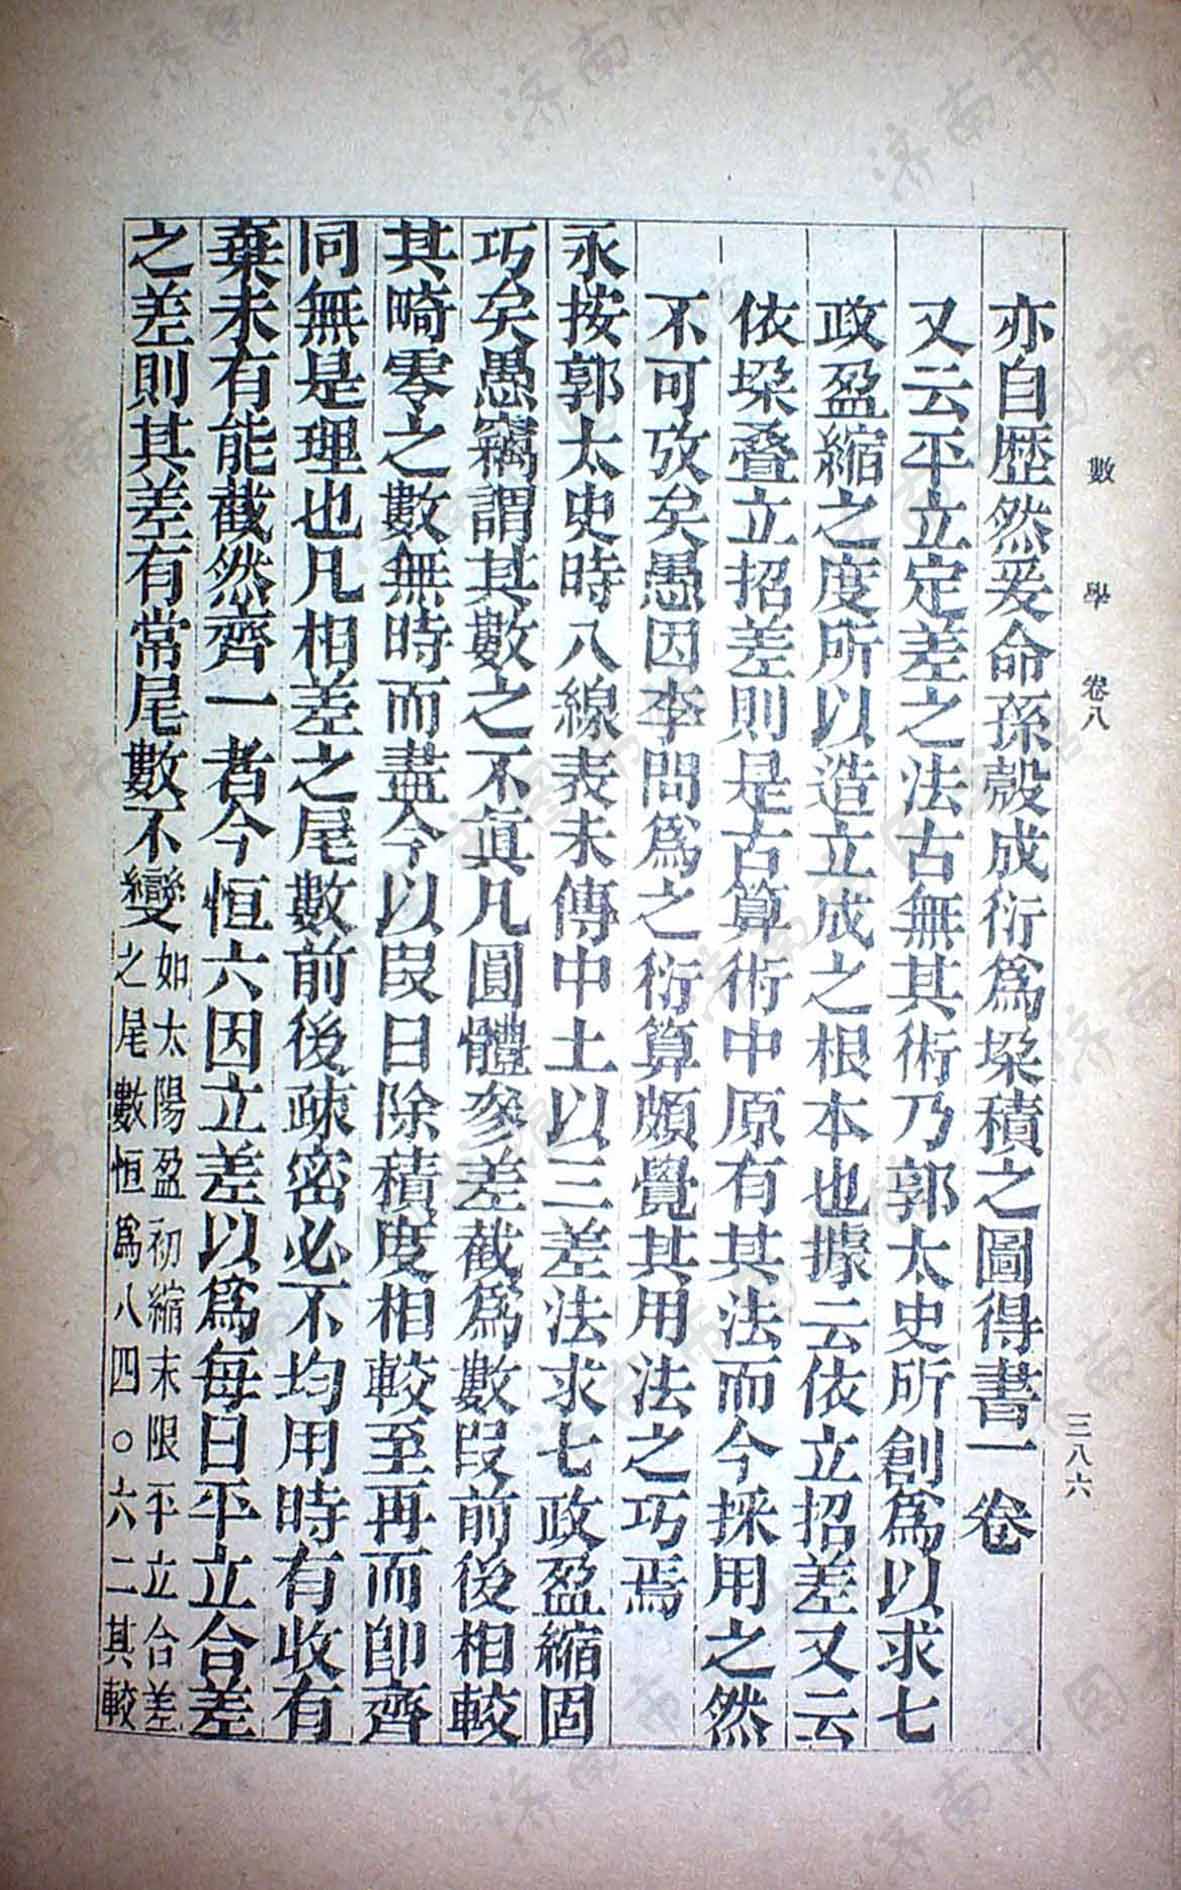 數學 卷八 三八六
亦自歴然爰命孫瑴成衍爲垜積之圖得書一卷
又云平立定差之法古無其術乃郭太史所創爲以求七
政盈縮之度所以造立成之根本也據云依立招差又云
依垜疊立招差則是古算術中原有其法而今採用之然
不可攷矣愚因李問爲之衍算頗覺其用法之巧焉
永按郭太史時八線表未傳中土以三差法求七政盈縮固
巧矣愚竊謂其數之不眞凡圓體參差截爲數段前後相較
其畸零之數無時而盡今以段日除積度相較至再而卽齊
同無是理也凡相差之尾數前後疎密必不均用時有收有
棄未有能截然齊一者今恒六因立差以爲每日平立合差
之差則其差有常尾數不變如太陽盈初縮末限平立合差
之尾數恒爲八四○六二其較